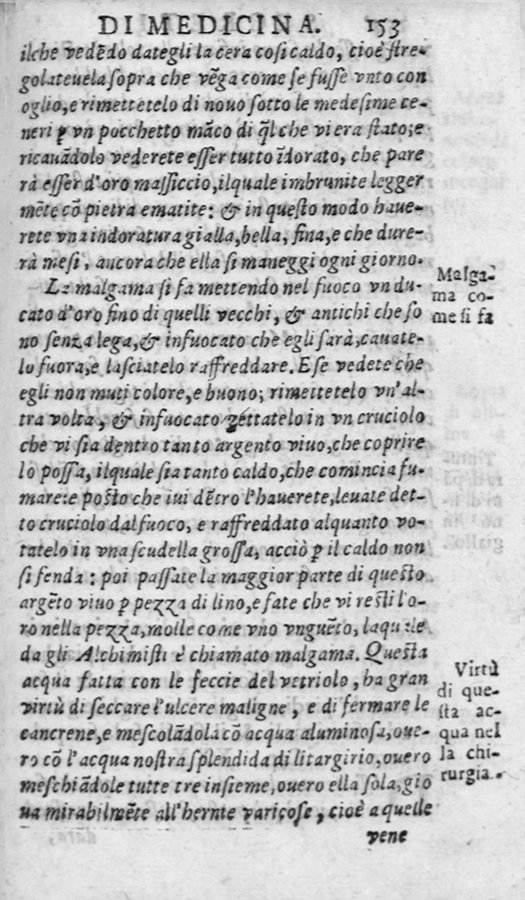 DI MEDICINA. 153
ilche vedēdo dategli la cera cosi caldo, cioè stre-
golateuela sopra che vēga come se fusse vnto con
oglio, e rimettetelo di nouo sotto le medesime ce-
neri ꝑ vn pocchetto māco di q̄l che vi era stato; e
ricauādolo vederete esser tutto īdorato, che pare
rà esser d'oro massiccio, ilquale imbrunite legger
mēte cō pietra ematite: & in questo modo haue-
rete vna indoratura gialla, bella, fina, e che dure-
rà mesi, ancora che ella si maneggi ogni giorno.
La malgama si fa mettendo nel fuoco vn du-
cato d'oro fino di quelli vecchi, & antichi che so
no senza lega, & infuocato che egli sarà, cauate-
lo fuora, e lasciatelo raffreddare. E se vedete che
egli non muti colore, e buono; rimettetelo vn'al-
tra volta, & infuocato gēttatelo in vn cruciolo
che vi sia dentro tanto argento viuo, che coprire
lo possa, ilquale sia tanto caldo, che comincia fu-
mare: e posto che iui dētro l'hauerete, leuate det-
to cruciolo dal fuoco, e raffreddato alquanto vo-
tatelo in vna scudella grossa, acciò ꝑ il caldo non
si fenda: poi passate la maggior parte di questo
argēto viuo ꝑ pezza di lino, e fate che vi resti l'o-
ro nella pezza, molle come vno vnguēto, laquale
da gli Alchimisti è chiamato malgama. Questa
acqua fatta con le feccie del vetriolo, ha gran
virtù di seccare l'ulcere maligne, e di fermare le
cancrene, e mescolādola cō acqua aluminosa, oue-
ro cō l'acqua nostra splendida di litargirio, ouero
meschiādole tutte tre insieme, ouero ella sola, gio
ua mirabilmēte all'hernie varicose, cioè a quelle
vene
Malga-
ma co-
me si fa
Virtù
di que-
sta ac-
qua nel
la chi-
rurgia.